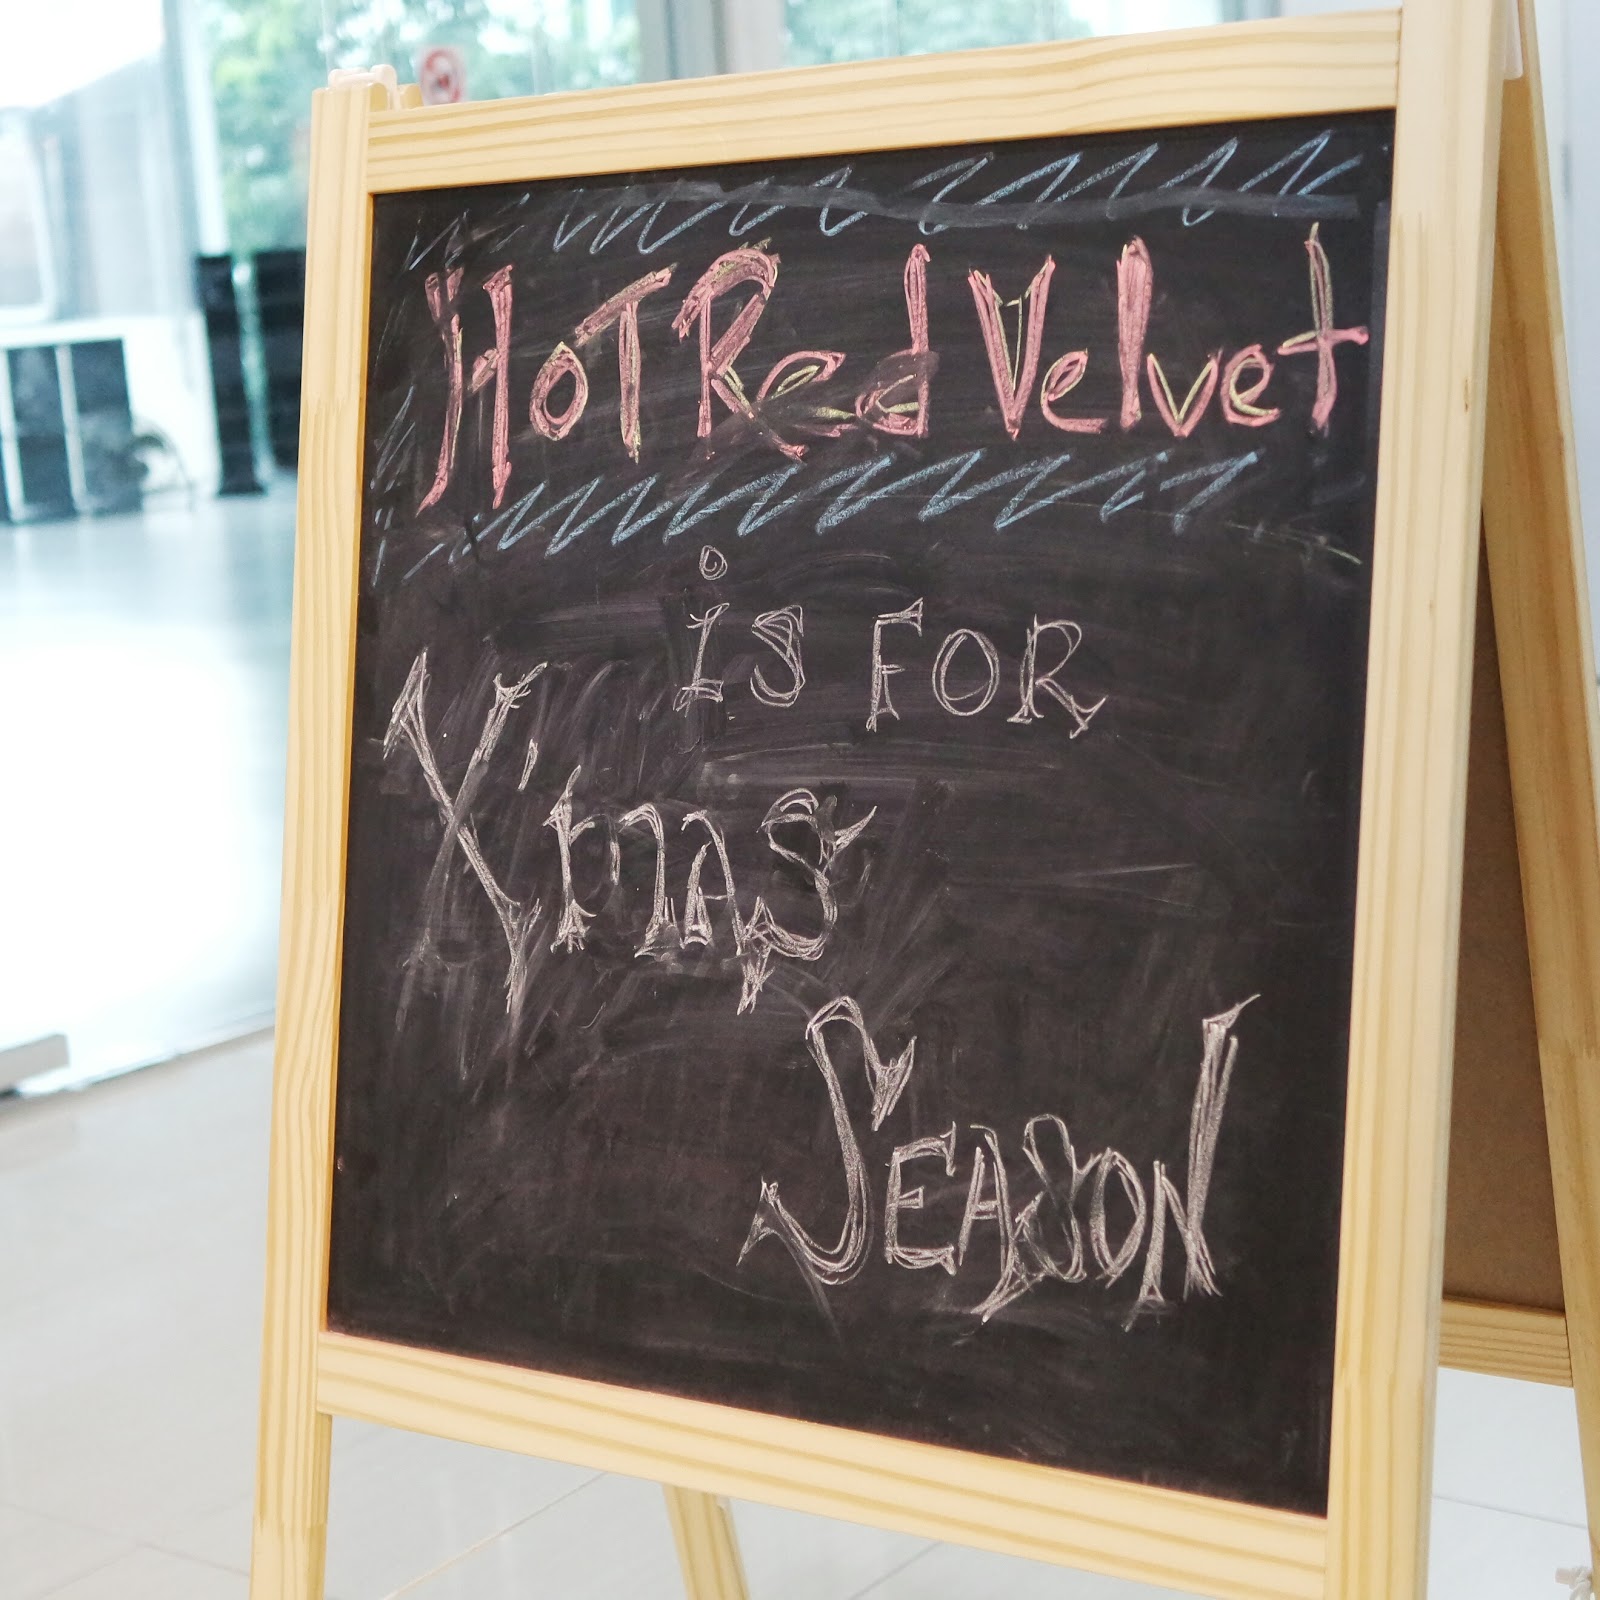 HoT Red Velvet
is FOR
X'mas
SEASON